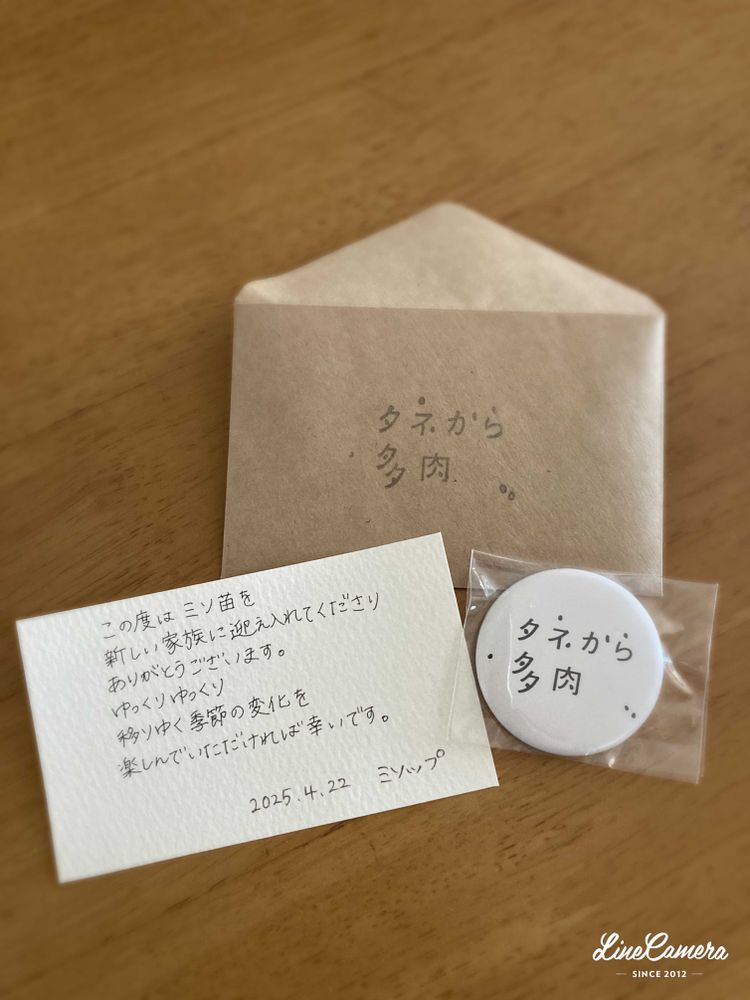 タネから
多肉
この度は ミソ苗を
新しい家族に迎え入れてくださり
ありがとうございます。
ゆっくりゆっくり
移りゆく季節の変化を
楽しんでいただければ幸いです。
2025.4.22 ミソップ
タネから
多肉
LineCamera
SINCE 2012